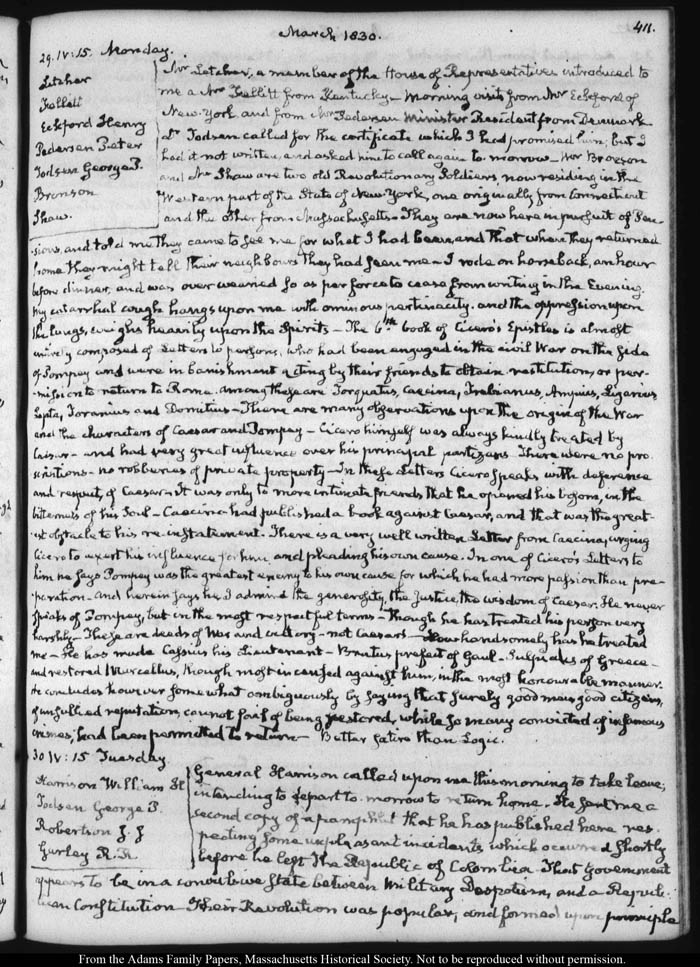 March 1830.
411.
29. IV: 15. Monday.
Letcher
Kellett
Eckford Henry
Pedersen Peter
Todsen George P.
Bronson
Shaw.
Mr Letcher, a member of the House of Representatives introduced to
me a Mr Kellett from Kentucky— Morning visits from Mr Eckford of
New-York and from Mr Pedersen Minister Resident from Denmark
Dr Todsen called for the certificate which I had promised him, but I
had it not written, and asked him to call again to-morrow— Mr Bronson
and Mr Shaw are two old Revolutionary Soldiers, now residing in the
Western part of the State of New-York, one originally from Connecticut
and the other from Massachusetts— They are now here in pursuit of Pen-
-sions, and told me they came to see me for what I had been, and that when they returned
home they might tell their neighbours they had seen me— I rode on horseback, an hour
before dinner, and was over wearied so as per force to cease from writing in the Evening.
My catarrhal cough hangs upon me with ominous pertinacity. and the oppression upon
the lungs, weighs heavily upon the Spirits— The 6th book of Cicero's Epistles is almost
entirely composed of Letters to persons, who had been engaged in the civil War on the side
of Pompey and were in banishment acting by their friends to obtain restitution, or per-
-mission to return to Rome. among these are Torquatus, Caecina, Trebianus, Ampius, Ligarius
Lepta, Toranius and Domitius— There are many observations upon the origin of the War
and the characters of Caesar and Pompey— Cicero himself was always kindly treated by
Caesar— and had very great influence over his principal partizans There were no pro-
scriptions— no robberies of private property— In these Letters Cicero speaks with deference
and respect, of Caesar— It was only to more intimate friends that he opened his bosom, in the
bitterness of his Soul— Caecina had published a book against Caesar, and that was the great-
-est obstacle to his re-instatement. There is a very well written Letter from Caecina, urging
Cicero to exert his influence for him, and pleading his own cause. In one of Cicero's Letters to
him he says Pompey was the greatest enemy to his own cause for which he had more passion than pre-
-paration— and herein says he, I admired the generosity, the Justice, the wisdom of Caesar. He never
speaks of Pompey, but in the most respectful terms— though he has treated his person very
harshly— These are deeds of War and victory— not Caesar's— How handsomely has he treated
me— He has made Cassius his Lieutenant— Brutus prefect of Gaul— Sulpicius of Greece—
and restored Marcellus, though most incensed against him, in the most honourable manner.
He concludes however somewhat ambiguously by saying that surely good men, good citizens,
of unsullied reputation, cannot fail of being restored, while so many convicted of infamous
crimes, had been permitted to return— Better satire than Logic.
30 IV: 15 Tuesday
Harrison William H
Todsen George P.
Robertson J. J
Gurley R. R.
General Harrison called upon me this morning to take leave;
intending to depart to-morrow to return home. He sent me a
second copy of a pamphlet that he has published here res-
pecting some unpleasant incidents which occurred shortly
before he left the Republic of Colombia That Government
appears to be in a convulsive State between Military Despotism, and a Repub-
lican Constitution Their Revolution was popular, and formed upon principle
From the Adams Family Papers, Massachusetts Historical Society. Not to be reproduced without permission.